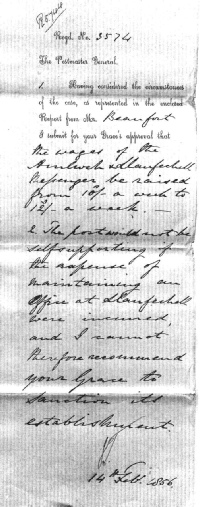 Regd. No. 3574
The Postmaster General.
1. Having considered the circumstances
of the case, as represented in the enclosed
Report from Mr. Beaufort
I submit for your Grace's approval that
the wages of the
Amlwch & Llanfechell
Messenger be raised
from 10/- a week to
12/- a week –
2. The post would not be
selfsupporting if
the expense of
maintaining an
Office at Llanfechell
were incurred,
and I cannot
therefore recommend
your Grace to
sanction its
establishment.
14th Feb. 1856.